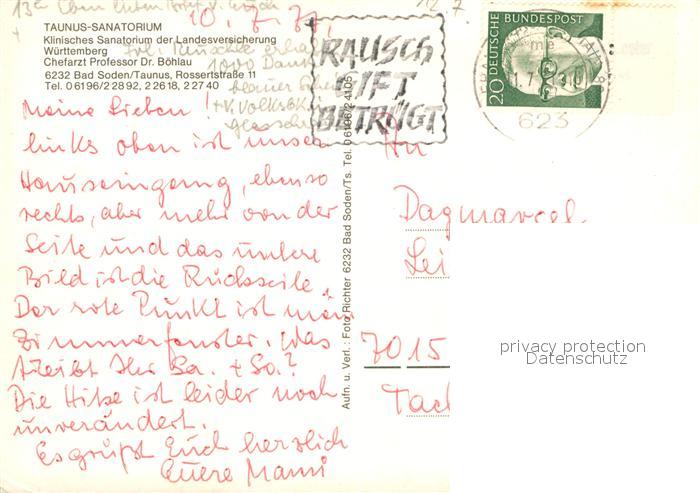 10.7.71.
TAUNUS-SANATORIUM
Klinisches Sanatorium der Landesversicherung
Württemberg
Chefarzt Professor Dr. Böhlau
6232 Bad Soden/Taunus, Rossertstraße 11
Tel. 06196/22892, 22618, 22740
Meine Lieben!
links oben ist unser
Hauseingang, ebenso
rechts, aber mehr von der
Seite und das untere
Bild ist die Rückseite.
Der rote Punkt ist mein
Zimmerfenster. Was
treibt Ihr Sa. + So.?
Die Hitze ist leider noch
unverändert.
Es grüßt Euch herzlich
Euere Mammi
Aufn. u. Verl.: Foto Richter 6232 Bad Soden/Ts. Tel. 06196/24105
RAUSCH
GIFT
BETRÜGT
DEUTSCHE BUNDESPOST
20
623
An
Lei
7015
privacy protection
Datenschutz